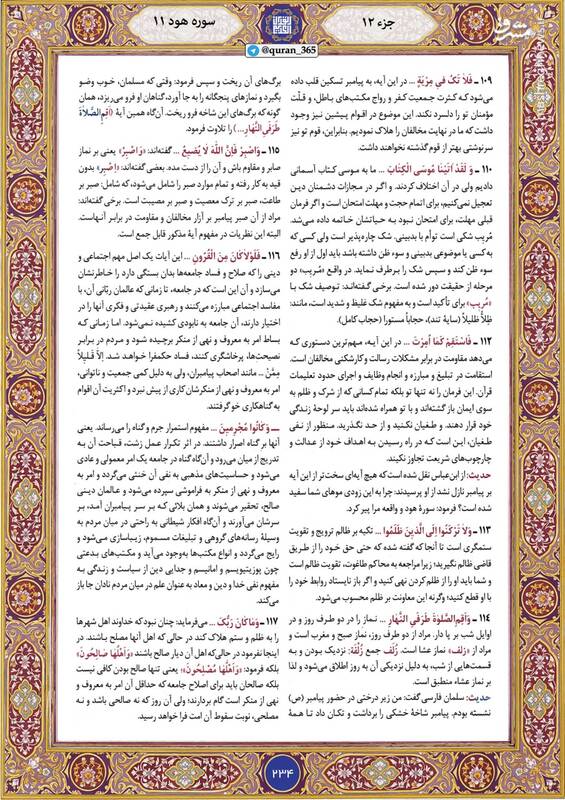 جزء ۱۲
سوره هود ۱۱
@quran_365
مشرق
۱۰۹- فَلَا تَکُ فِي مِرْيَةٍ ... در این آیه، به پیامبر تسکین قلب داده
می‌شود که کثرت جمعیت کفر و رواج مکتب‌های باطل، و قلّت
مؤمنان تو را دلسرد نکند. این موضوع در اقوام پیشین نیز وجود
داشت که ما در نهایت مخالفان را هلاک نمودیم. بنابراین، قوم تو نیز
سرنوشتی بهتر از قوم گذشته نخواهند داشت.
۱۱۰- وَ لَقَدْ آتَيْنَا مُوسَى الْكِتَابَ ... ما به موسی کتاب آسمانی
دادیم ولی در آن اختلاف کردند. و اگر در مجازات دشمنان دین
تعجیل نمی‌کنیم، برای اتمام حجت و مهلت امتحان است و اگر فرمان
قبلی مهلت، برای امتحان نبود به حیاتشان خاتمه داده می‌شد.
مُریب شکی است توأم با بدبینی. شک چاره‌پذیر است ولی کسی که
به کسی یا موضوعی بدبینی و سوء ظن داشته باشد باید اول از او رفع
سوء ظن کند و سپس شک را برطرف نماید. در واقع «مُریب» دو
مرحله از حقیقت دور شده است. برخی گفته‌اند: توصیف شک با
«مُریب» برای تأکید است و به مفهوم شک غلیظ و شدید است، مانند:
ظِلّاً ظَلیلاً (سایهٔ تند)، حجاباً مستورا (حجاب کامل).
۱۱۲- فَاسْتَقِمْ كَمَا أُمِرْتَ ... در این آیه، مهم‌ترین دستوری که
می‌دهد مقاومت در برابر مشکلات رسالت و کارشکنی مخالفان است.
استقامت در تبلیغ و مبارزه و انجام وظایف و اجرای حدود تعلیمات
قرآن. این فرمان را نه تنها تو بلکه تمام کسانی که از شرک و ظلم به
سوی ایمان بازگشته‌اند و با تو همراه شده‌اند باید سر لوحهٔ زندگی
خود قرار دهند. و طغیان نکنید و از حد نگذرید. منظور از نفی
طغیان، این است که در راه رسیدن به اهداف خود از عدالت و
چارچوب‌های شریعت تجاوز نکنید.
حدیث: از ابن‌عباس نقل شده است که هیچ آیه‌ای سخت‌تر از این آیه
بر پیامبر نازل نشد از او پرسیدند: چرا به این زودی موهای شما سفید
شده است؟ فرمود: سورهٔ هود و واقعه مرا پیر کرد.
۱۱۳- وَلَا تَرْكَنُوا إِلَى الَّذِينَ ظَلَمُوا ... تکیه بر ظالم ترویج و تقویت
ستمگری است تا آنجا که گفته شده که حتی حق خود را از طریق
قاضی ظالم نگیرید؛ زیرا مراجعه به محاکم طاغوت، تقویت ظالم است
و شما باید او را از ظلم کردن نهی کنید و اگر باز نایستاد روابط خود را
با او قطع کنید؛ وگرنه این معاونت بر ظلم محسوب می‌شود.
۱۱۴- وَأَقِمِ الصَّلٰوةَ طَرَفَيِ النَّهَارِ ... نماز را در دو طرف روز و در
اوایل شب بر پا دار. مراد از دو طرف روز، نماز صبح و مغرب است و
مراد از «زلف» نماز عشا است. زُلَف جمع زُلْفَة: نزدیک بودن و به
قسمت‌هایی از شب، به دلیل نزدیکی آن به روز اطلاق می‌شود و لذا
بر نماز عشاء منطبق است.
حدیث: سلمان فارسی گفت: من زیر درختی در حضور پیامبر (ص)
نشسته بودم. پیامبر شاخهٔ خشکی را برداشت و تکان داد تا همهٔ
برگ‌های آن ریخت و سپس فرمود: وقتی که مسلمان، خوب وضو
بگیرد و نمازهای پنجگانه را به جا آورد، گناهان او فرو می‌ریزد، همان
گونه که برگ‌های این شاخه فرو ریخت آن‌گاه همین آیهٔ (أَقِمِ الصَّلَاةَ
طَرَفَيِ النَّهَارِ...) را تلاوت فرمود.
۱۱۵- وَاصْبِرْ فَإِنَّ اللَّهَ لَا يُضِيعُ ... گفته‌اند: «وَاصْبِرْ» یعنی بر نماز
صابر و مقاوم باش و آن را از دست مده. بعضی گفته‌اند: «اِصْبِرْ» بدون
قید به کار رفته و تمام موارد صبر را شامل می‌شود، که شامل: صبر بر
طاعت، صبر بر ترک معصیت و صبر بر مصیبت است. برخی گفته‌اند:
مراد از آن صبر پیامبر بر آزار مخالفان و مقاومت در برابر آنهاست.
البته این نظریات در مفهوم آیهٔ مذکور قابل جمع است.
۱۱۶- فَلَوْلَا كَانَ مِنَ الْقُرُونِ ... این آیات یک اصل مهم اجتماعی و
دینی را که صلاح و فساد جامعه‌ها بدان بستگی دارد را خاطرنشان
می‌سازد و آن این است که در جامعه، تا زمانی که عالمان ربّانی آن، با
مفاسد اجتماعی مبارزه می‌کنند و رهبری عقیدتی و فکری آنها را در
اختیار دارند، آن جامعه به نابودی کشیده نمی‌شود. اما زمانی که
بساط امر به معروف و نهی از منکر برچیده شود و مردم در برابر
نصیحت‌ها، پرخاشگری کنند، فساد حکمفرا خواهد شد. إِلَّا قَلِيلاً
مِمَّنْ ... مانند اصحاب پیامبران، ولی به دلیل کمی جمعیت و ناتوانی،
امر به معروف و نهی از منکرشان کاری از پیش نبرد و اکثریت آن اقوام
به گناهکاری خو گرفتند.
ــ وَكَانُوا مُجْرِمِينَ ... مفهوم استمرار جرم و گناه را می‌رساند. یعنی
آنها بر گناه اصرار داشتند. در اثر تکرار عمل زشت، قباحت آن به
تدریج از میان می‌رود و آن‌گاه گناه در جامعه یک امر معمولی و عادی
می‌شود و حساسیت‌های مذهبی به نفی آن خنثی می‌گردد و امر به
معروف و نهی از منکر به فراموشی سپرده می‌شود و عالمان دینی
صالح، تحقیر می‌شوند و همان بلائی که بر سر پیامبران آمد، بر
سرشان می‌آورند و آن‌گاه افکار شیطانی به راحتی در میان مردم به
وسیلهٔ رسانه‌های گروهی و تبلیغات مسموم، زیباسازی می‌شود و
رایج می‌گردد و انواع مکتب‌ها بوجود می‌آید و مکتب‌های بدعتی
چون پوزیتیویسم و امانیسم و جدایی دین از سیاست و زندگی به
مفهوم نفی خدا و دین و معاد به عنوان علم در میان مردم نادان جا باز
می‌کند.
۱۱۷- وَمَا كَانَ رَبُّكَ ... می‌فرماید: چنان نبود که خداوند اهل شهرها
را به ظلم و ستم هلاک کند در حالی که اهل آنها مصلح باشند. در
اینجا نفرمود در حالی که اهل آن دیار صالح باشند «وَأَهْلُهَا صَالِحُونَ»
بلکه فرمود: «وَأَهْلُهَا مُصْلِحُونَ»؛ یعنی تنها صالح بودن کافی نیست
بلکه صالحان باید برای اصلاح جامعه که حداقل آن امر به معروف و
نهی از منکر است گام بردارند؛ ولی آن روز که نه صالحی باشد و نه
مصلحی، نوبت سقوط آن امت فرا خواهد رسید.
۲۳۴